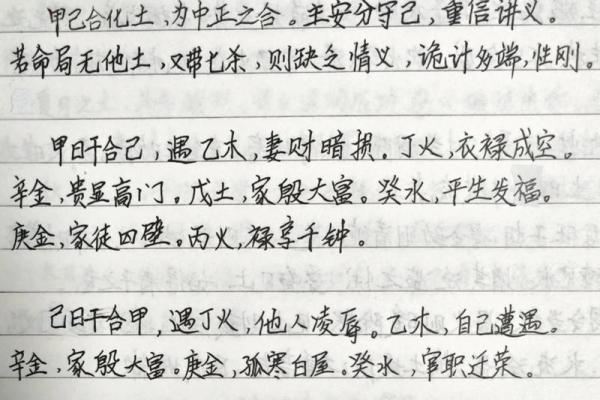 甲己合化土,为中正之合。主安分守己,重信讲义。
若命局无他土,又带七杀,则缺乏情义,诡计多端,性刚。
甲日干合己,遇乙木,妻财暗损。丁火,衣禄成空。
辛金,贵显高门。戊土,家殷大富。癸水,平生发福。
庚金,家徒四壁。丙火,禄享千钟。
己日干合甲,遇丁火,他人凌辱。乙木,自己遭遇。
辛金,家殷大富。庚金,孤寒白屋。癸水,官职迁荣。